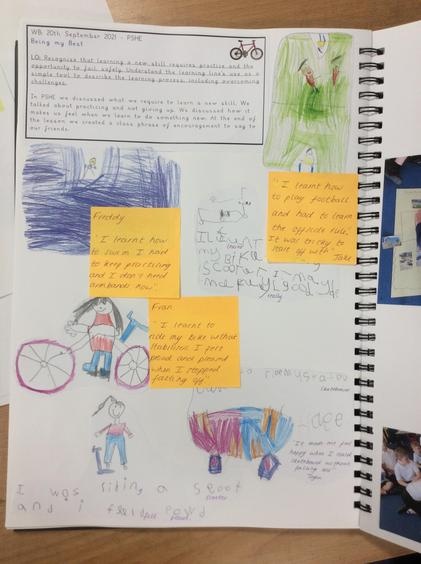 WB: 20th September 2021 - PSHE
Being my Best
LO: Recognise that learning a new skill requires practice and the
opportunity to fail safely. Understand the learning line's use as a
simple tool to describe the learning process, including overcoming
challenges.
In PSHE we discussed what we require to learn a new skill. We
talked about practicing and not giving up. We discussed how it
makes us feel when we learn to do something new. At the end of
the lesson we created a class phrase of encouragement to say to
our friends.
"I learnt how
to play football
and had to learn
the offside rule.
It was tricky to
start off with" Jake
Freddy
"I learnt how
to swim. I had
to keep practising
and I don't need
armbands now".
my BIKE
really
Fran
"I learnt to
ride my bike without
stabilisers. I felt
proud and pleased
when I stopped
falling off"
skateboarder
"It made me feel
happy when I could
skateboard without
falling over"
I was riding a scoot
scooter
and i
felt proud.